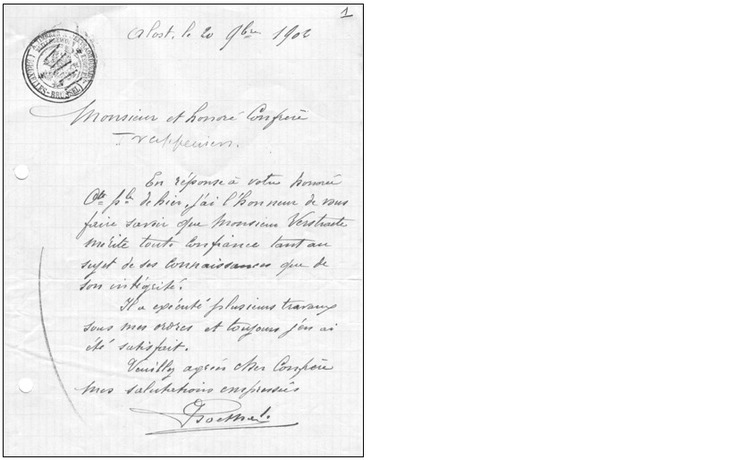 1
Alost, le 20 9bre 1902
Monsieur et honoré Confrère
En réponse à votre honorée
de hier, j'ai l'honneur de vous
faire savoir que Monsieur Verstraete
mérite toute confiance tant au
sujet de ses connaissances que de
son intégrité.
Il a exécuté plusieurs travaux
sous mes ordres et toujours j'en ai
été satisfait.
Veuillez agréer cher Confrère
mes salutations empressées